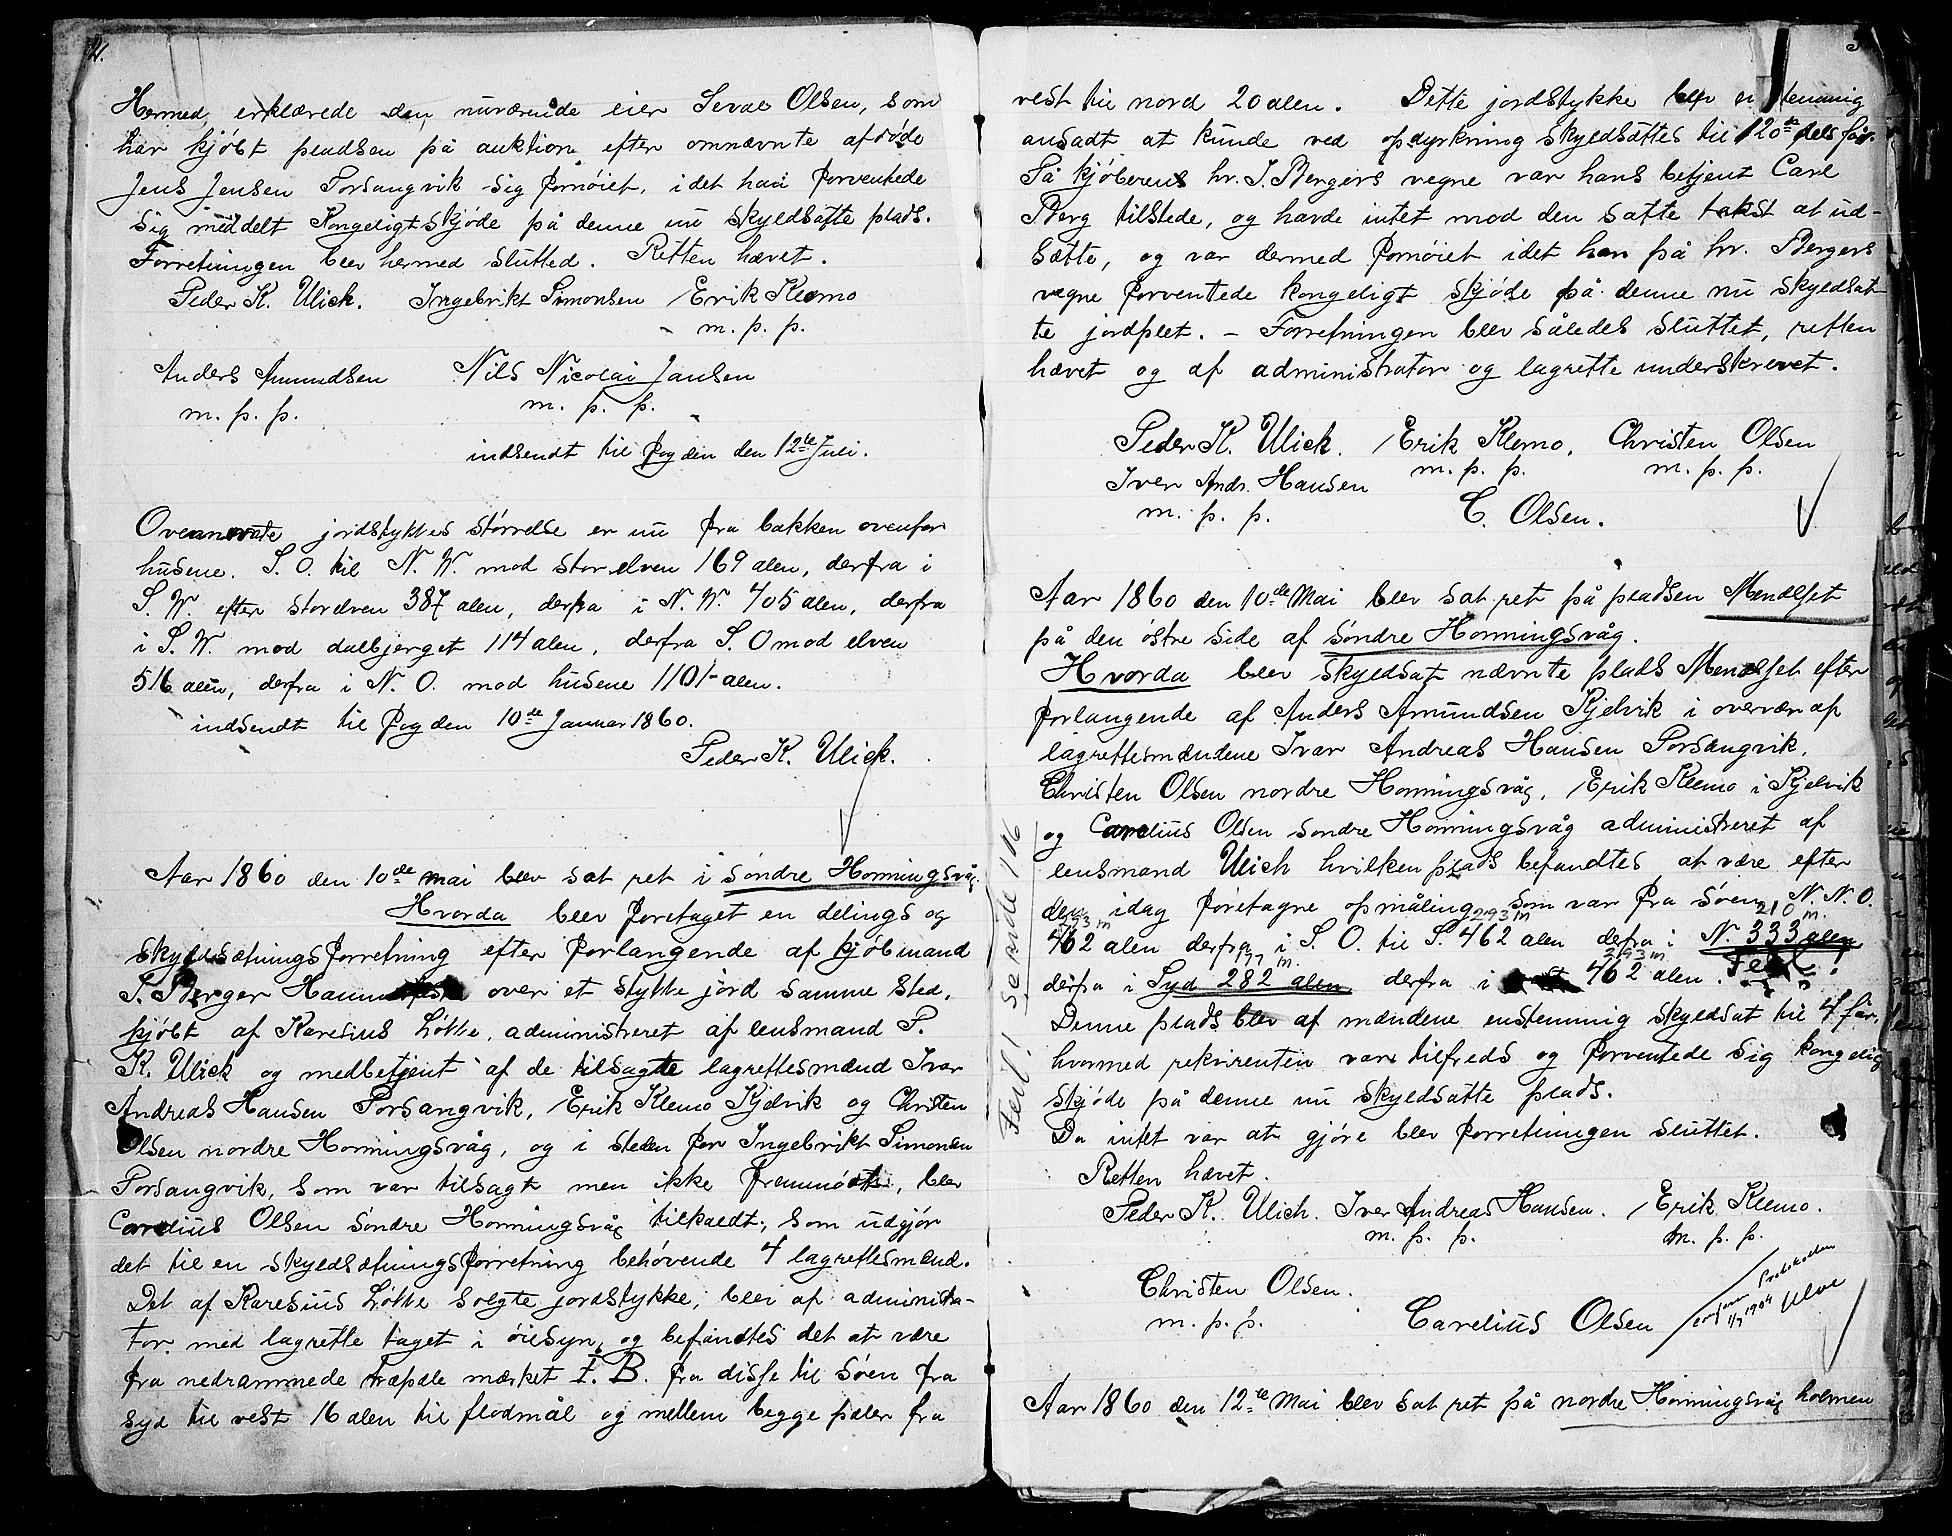 2.
Hermed erklærede den nuværende eier Seval Olsen, som
har kjöbt pladsen på auktion efter omnævnte afdöde
Jens Jensen Porsangvik sig fornöiet, idet han forventede
sig meddelt Kongeligt skjöde på denne nu skyldsatte plads.
Forretningen blev hermed slutted. Retten hævet.
Peder K. Ulich. Ingebrikt Simonsen Erik Klemo
m. p. p.
Anders Amundsen Nils Nicolai Jansen
m. p. p. m. p. p.
indsendt til fogden den 12te Juli.
Ovennævnte jordstykkes störrelse er nu fra bakken ovenfor
husene. S. O. til N. W. mod storelven 169 alen, derfra i
S. W. efter storelven 387 alen, derfra i N. W. 405 alen, derfra
i S. W. mod dalbjerget 114 alen, derfra S. O mod elven
516 alen, derfra i N. O. mod husene 1101 alen.
indsendt til fogden 10de Januar 1860.
Peder K. Ulich.
Aar 1860 den 10de mai blev sat ret i söndre Honningsvåg.
Hvorda blev foretaget en delings og
skyldsætningsforretning efter forlangende af kjöbmand
Berger Hammerfest over et stykke jord samme sted,
kjöbt af Karesius Lökke, administreret af lensmand P.
K. Ulich og medbetjent af de tilsagte lagrettesmænd Ivar
Andreas Hansen Porsangvik, Erik Klemo Kjelvik og Christen
Olsen nordre Honningsvåg, og i steden for Ingebrikt Simonsen
Porsangvik, som var tilsagt men ikke fremmödt, blev
Carelius Olsen söndre Honningsvåg tilkaldt, som udgjör
det til en skyldsætningsforretning behövende 4 lagrettesmænd.
Det af Karesius Lökke solgte jordstykke, blev af administra-
tor med lagrette taget i öiesyn, og befandtes det at være
fra nedrammede træpæle mærket I. B. fra disse til söen fra
syd til vest 16 alen til flodmål og mellem begge pæler fra
vest til nord 20 alen. Dette jordstykke blev enstemmig
ansadt at kunde ved opdyrkning skyldsættes til 120de dels får.
På kjöberens hr. Bergers vegne var hans betjent Carl
Berg tilstede, og havde intet mod den satte takst at ud-
sætte, og var dermed fornöiet idet han på hr. Bergers
vegne forventede kongeligt skjöde på denne nu skyldsat-
te jordplet. – Forretningen blev således sluttet, retten
hævet og af administrator og lagrette underskrevet.
Peder K. Ulich. Erik Klemo. Christen Olsen
m. p. p. m. p. p.
Iver Andr. Hansen
m. p. p. C. Olsen.
Aar 1860 den 10de Mai blev sat ret på pladsen Mendelset
på den östre side af söndre Honningsvåg.
Hvorda blev skyldsat nævnte plads Mendelset efter
forlangende af Anders Amundsen Kjelvik i overvær af
lagrettesmændene Ivar Andreas Hansen Porsangvik,
Christen Olsen nordre Honningsvåg, Erik Klemo i Kjelvik
og Carelius Olsen sondre Honningsvåg administreret af
lensmand Ulich hvilken plads befandtes at være efter
den idag foretagne opmåling som var fra söen N. N. O.
293 m 293 m 210 m.
462 alen derfra i S. O. til S. 462 alen derfra i N. 333 alen
177 m. 293 m.
derfra i Syd 282 alen derfra i 462 alen. Feil!
Denne plads blev af mændene enstemmig skyldsat til 4 får.
hvormed rekvirenten var tilfreds og forventede sig kongelig
skjöde på denne nu skyldsatte plads.
Da intet var at gjöre blev forretningen sluttet.
Retten hævet.
Peder K. Ulich. Iver Andreas Hansen. Erik Klemo.
m. p. p. m. p. p.
Christen Olsen.
m. p. p. Carelius Olsen
Protokollen
1/7 1904 Ulve
Feil! Se side 116
Aar 1860 den 12te Mai blev sat ret på nordre Honningsvåg holmen